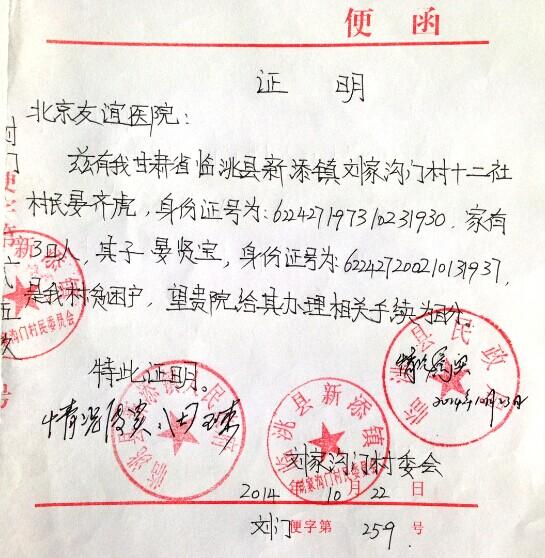 便函
证明
北京友谊医院：
兹有我甘肃省临洮县新添镇刘家沟门村十二社
村民晏齐虎，身份证号为：622427197310231930，家有
3口人，其子晏贤宝，身份证号为：622427200210131937，
是我村贫困户，望贵院给其办理相关手续为盼。
特此证明。
情况属实
2014年10月23日
情况属实
刘家沟门村委会
2014年10月22日
刘门便字第259号
临洮县民政
临洮县新添镇
刘家沟门村民委员会
临洮县新添镇民政
新添镇
沟门村民委员会
便字第
号